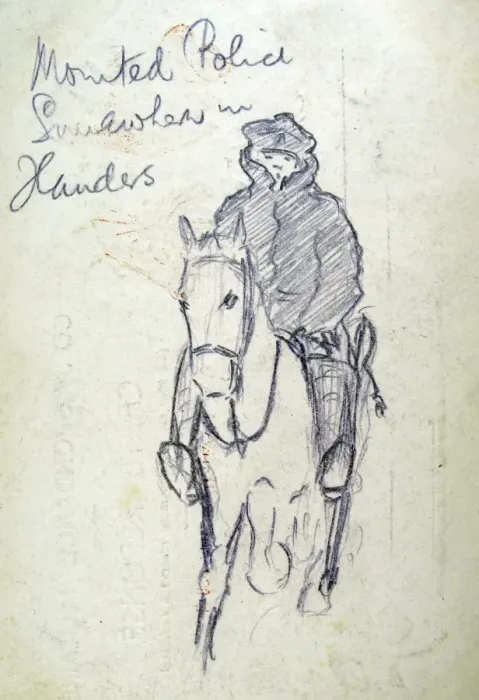 Mounted Police
Somewhere in
Flanders